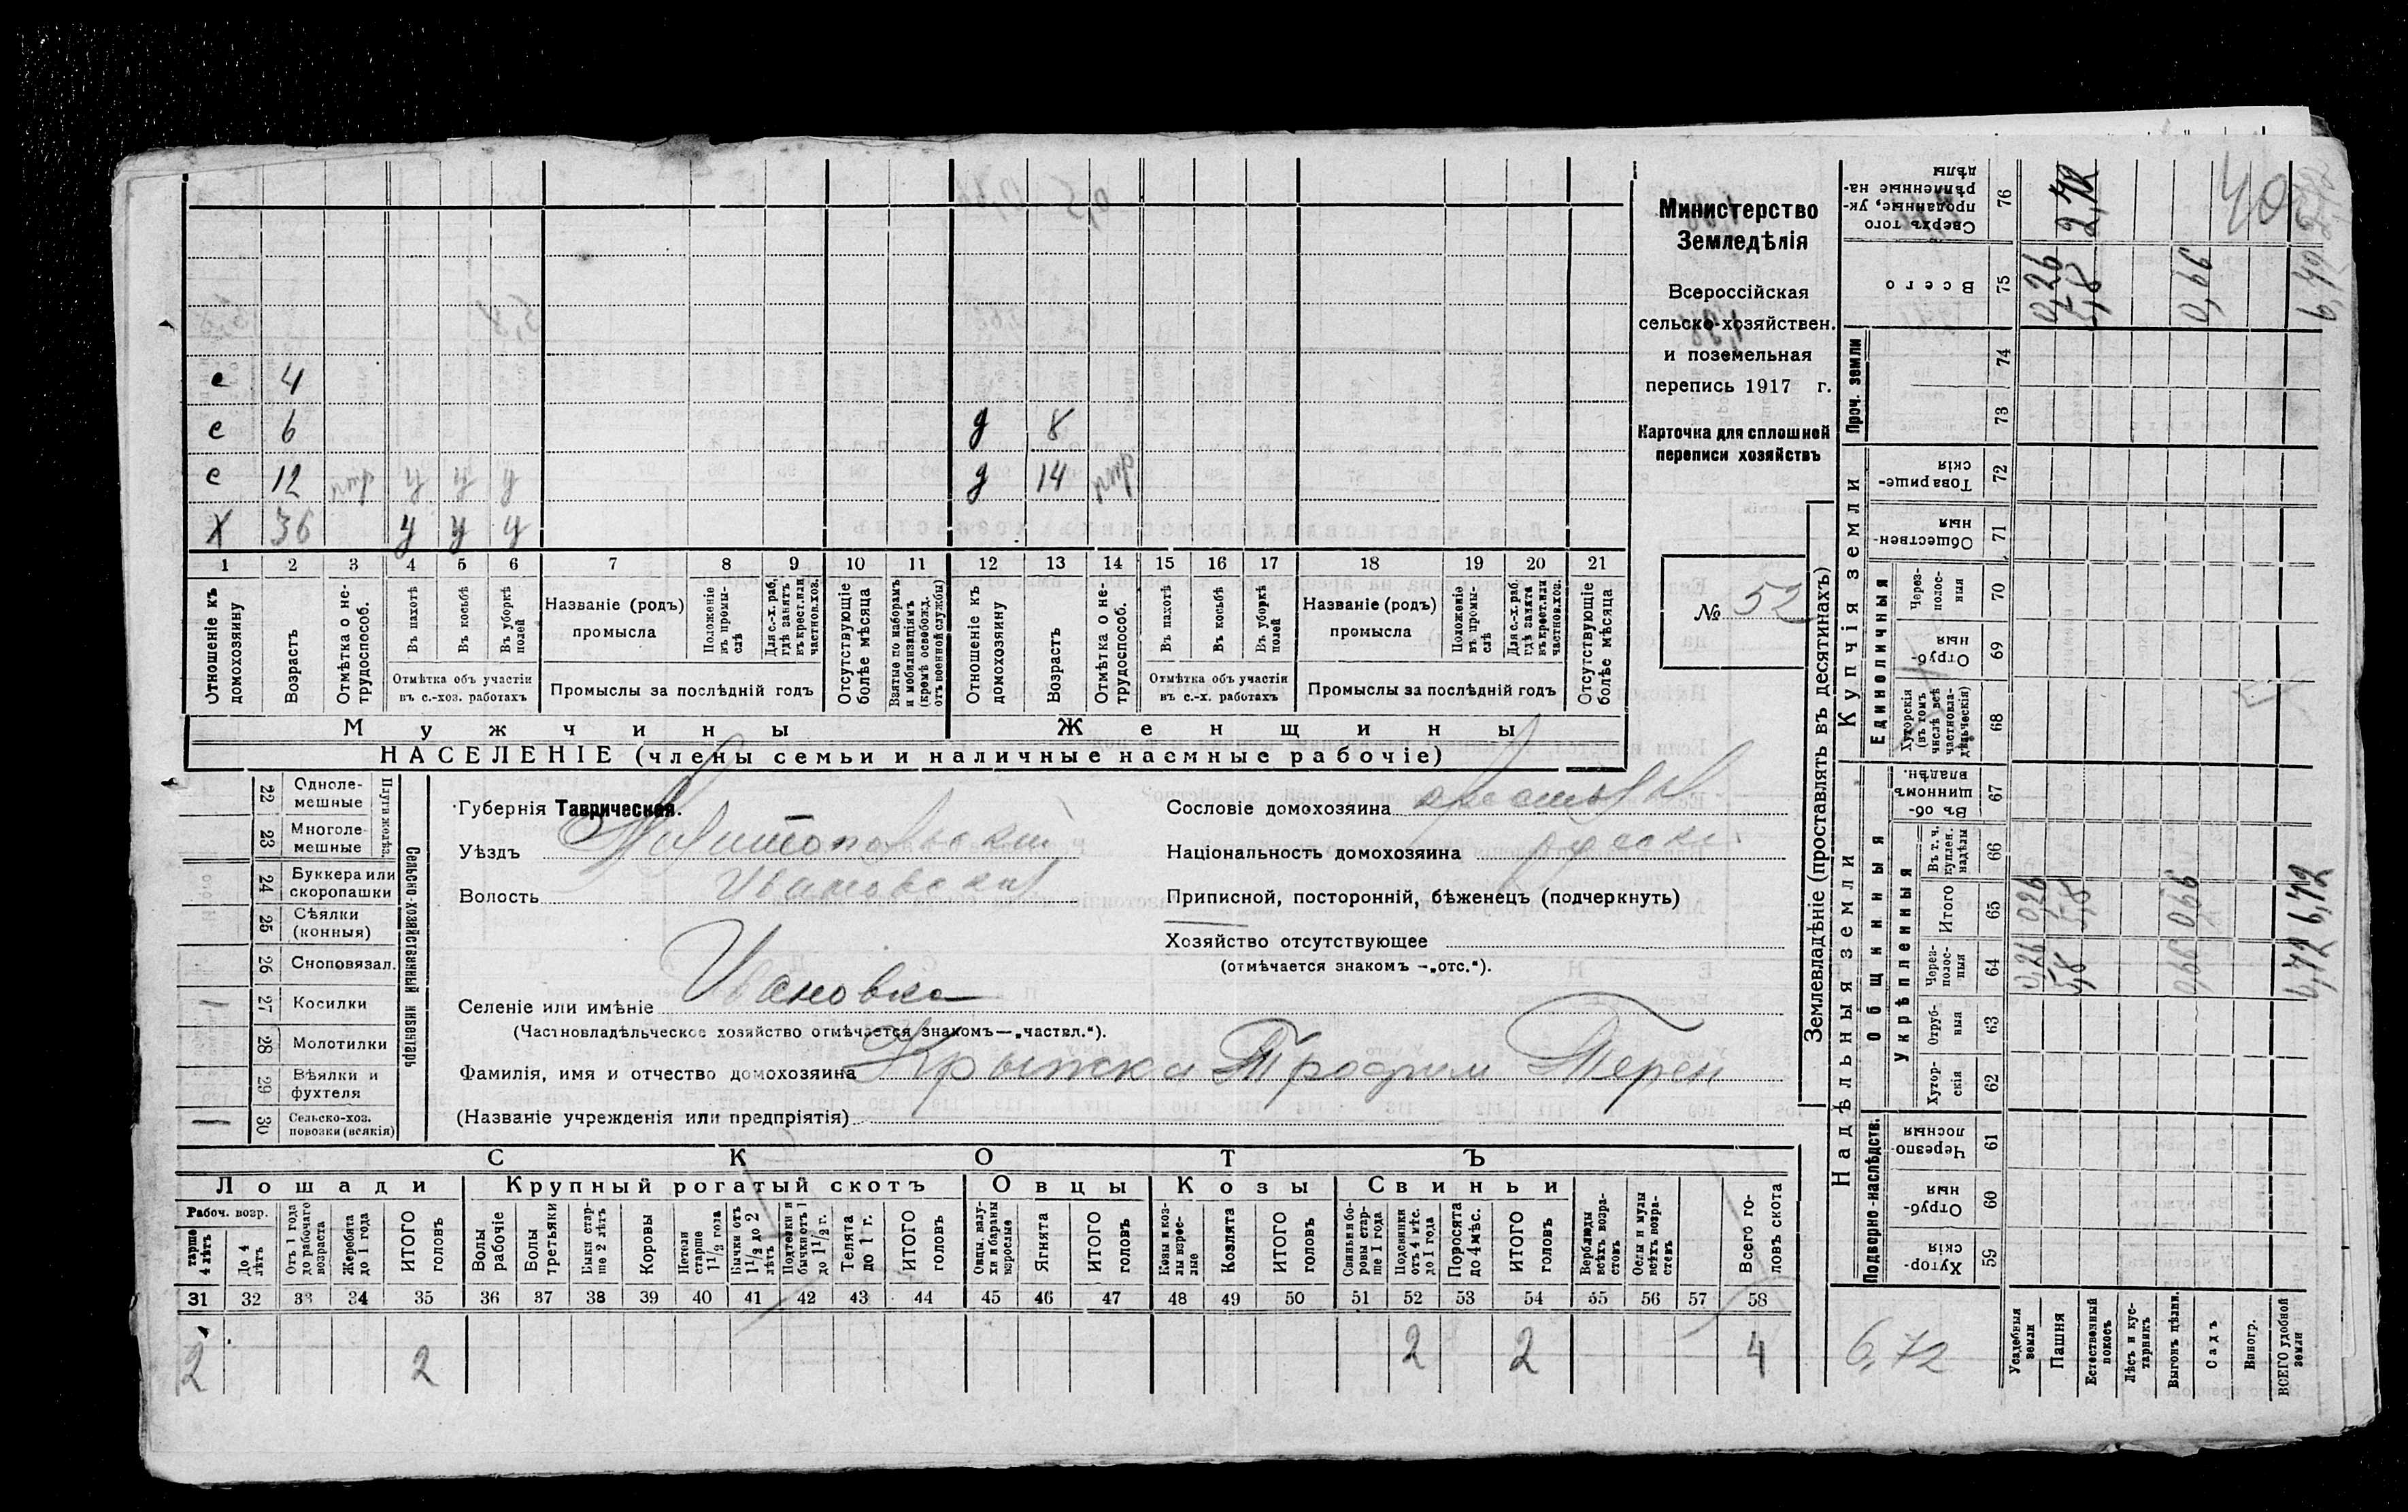 е 4
е 6 д 8
е 12 нтр у у у д 14 нтр
Х 36 у у у
1 2 3 4 5 6 7 8 9 10 11 12 13 14 15 16 17 18 19 20 21
Отношеніе къ домохозяину
Возрастъ
Отмѣтка о не-трудоспособ.
Въ пахотѣ
Въ косьбѣ
Въ уборкѣ полей
Отмѣтка объ участіи въ с.-хоз. работахъ
Названіе (родъ) промысла
Положеніе въ промы-слѣ
Для с.-х. раб, гдѣ занятъ въ крест. или частнов. хоз.
Промыслы за послѣдній годъ
Отсутствующіе болѣе мѣсяца
Взятые по наборамъ и мобилизаціямъ (кромѣ освобожд. отъ военной службы)
Отношеніе къ домохозяину
Возрастъ
Отмѣтка о не-трудоспособ.
Въ пахотѣ
Въ косьбѣ
Въ уборкѣ полей
Отмѣтка объ участіи въ с.-х. работахъ
Названіе (родъ) промысла
Положеніе въ промы-слѣ
Для с.-х. раб. гдѣ занята въ крест. или частнов. хоз.
Промыслы за послѣдній годъ
Отсутствующіе болѣе мѣсяца
Мужчины
Женщины
НАСЕЛЕНІЕ (члены семьи и наличные наемные рабочіе)
Министерство
Земледѣлія
Всероссійская
сельско-хозяйствен.
и поземельная
перепись 1917 г.
Карточка для сплошной
переписи хозяйствъ
№ 52
22 Одноле-мешные
23 Многоле-мешные
Плуги желѣз.
24 Буккера или скоропашки
25 Сѣялки (конныя)
26 Сноповязал.
27 Косилки
28 Молотилки
29 Вѣялки и фухтеля
30 Сельско-хоз. повозки (всякія)
Сельско-хозяйственный инвентарь
Губернія Таврическая.
Уѣздъ Мелитопольскій
Волость Ивановская
Селеніе или имѣніе Ивановка
(Частновладѣльческое хозяйство отмѣчается знакомъ—„частвл.“).
Фамилія, имя и отчество домохозяина Крыжка Трофим Терен
(Названіе учрежденія или предпріятія)
Сословіе домохозяина
Національность домохозяина
Приписной, посторонній, бѣженецъ (подчеркнуть)
Хозяйство отсутствующее
(отмѣчается знакомъ —„отс.“).
СКОТЪ
Лошади
Крупный рогатый скотъ
Овцы
Козы
Свиньи
Рабоч. возр.
тарше 4 лѣтъ
До 4 лѣтъ
Отъ 1 года до рабочаго возраста
Жеребята до 1 года
ИТОГО головъ
Волы рабочіе
Волы третьяки
Быки стар-ше 2 лѣтъ
Коровы
Нетели старше 1 1/2 года
Бычки отъ 1 1/2 до 2 лѣтъ
Подтелки и бычки отъ 1 до 1 1/2 г.
Телята до 1 г.
ИТОГО головъ
Овцы, валу-хи и бараны взрослые
Ягнята
ИТОГО головъ
Козы и коз-лы взрос-лые
Козлята
ИТОГО головъ
Свиньи и бо-ровы стар-ше 1 года
Подсвинки отъ 4 мѣс. до 1 года
Поросята до 4 мѣс.
ИТОГО головъ
Верблюды всѣхъ возра-стовъ
Ослы и мулы всѣхъ возра-стовъ
Всего го-ловъ скота
31 32 33 34 35 36 37 38 39 40 41 42 43 44 45 46 47 48 49 50 51 52 53 54 55 56 57 58
2 2 2 2 4
Землевладѣніе (проставлять въ десятинахъ)
Надѣльныя земли
Купчія земли
Проч. земли
Подворно-наслѣдств.
Общинныя
Укрѣпленныя
Единоличныя
Хутор-скія 59
Отруб-ныя 60
Черезпо-лосныя 61
Хутор-скія 62
Отруб-ныя 63
Через-полос-ныя 64
Итого 65
Въ т. ч. куплен. надѣлы 66
Въ об-щинномъ владѣн. 67
Хуторскія (въ томъ числѣ всѣ частновла-дѣльческія) 68
Отруб-ныя 69
Через-полос-ныя 70
Обществен-ныя 71
Товарище-скія 72
73
74
Всего 75
Сверхъ того проданные, ук-рѣпленные на-дѣлы 76
Усадебныя земли
Пашня
Естественный покосъ
Лѣсъ и кус-тарникъ
Выгонъ цѣлин.
Садъ
Виногр.
ВСЕГО удобной земли
0,26 5,8 0,66 6,72
0,26 5,8 0,66 6,72
0,26 5,8 0,66 6,72
40
6,72